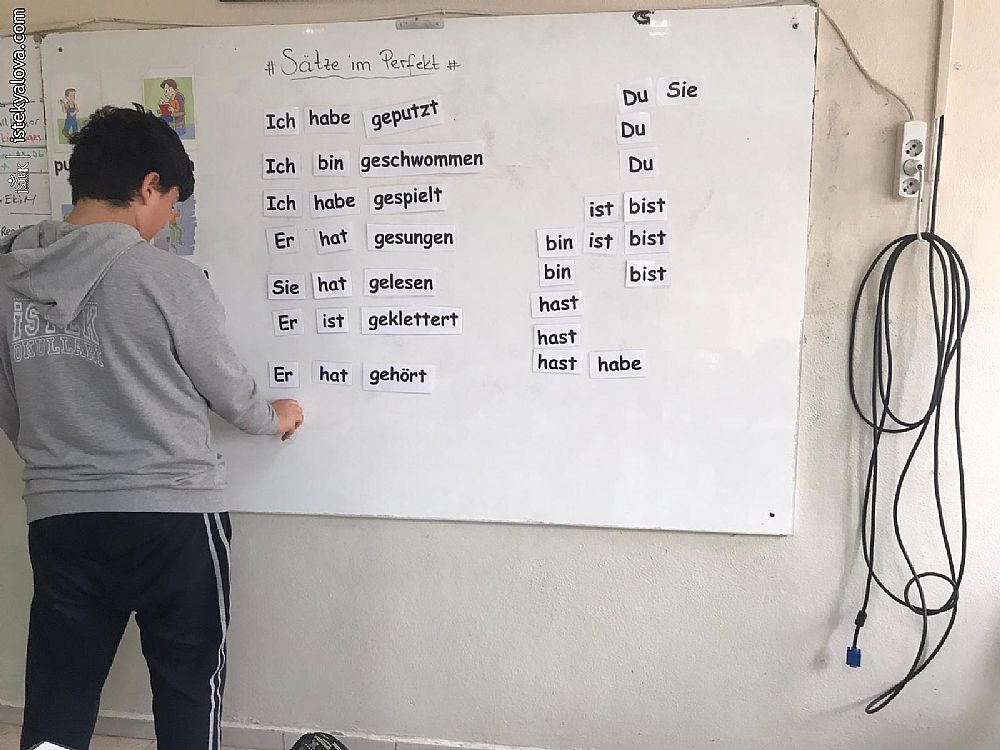 istekyalova.com
iSTK
# Sätze im Perfekt #
Ich habe geputzt
Ich bin geschwommen
Ich habe gespielt
Er hat gesungen
Sie hat gelesen
Er ist geklettert
Er hat gehört
Du Sie
Du
Du
ist bist
bin ist bist
bin bist
hast
hast
hast habe
pu
EKiM
iSTEK
OKULLARI